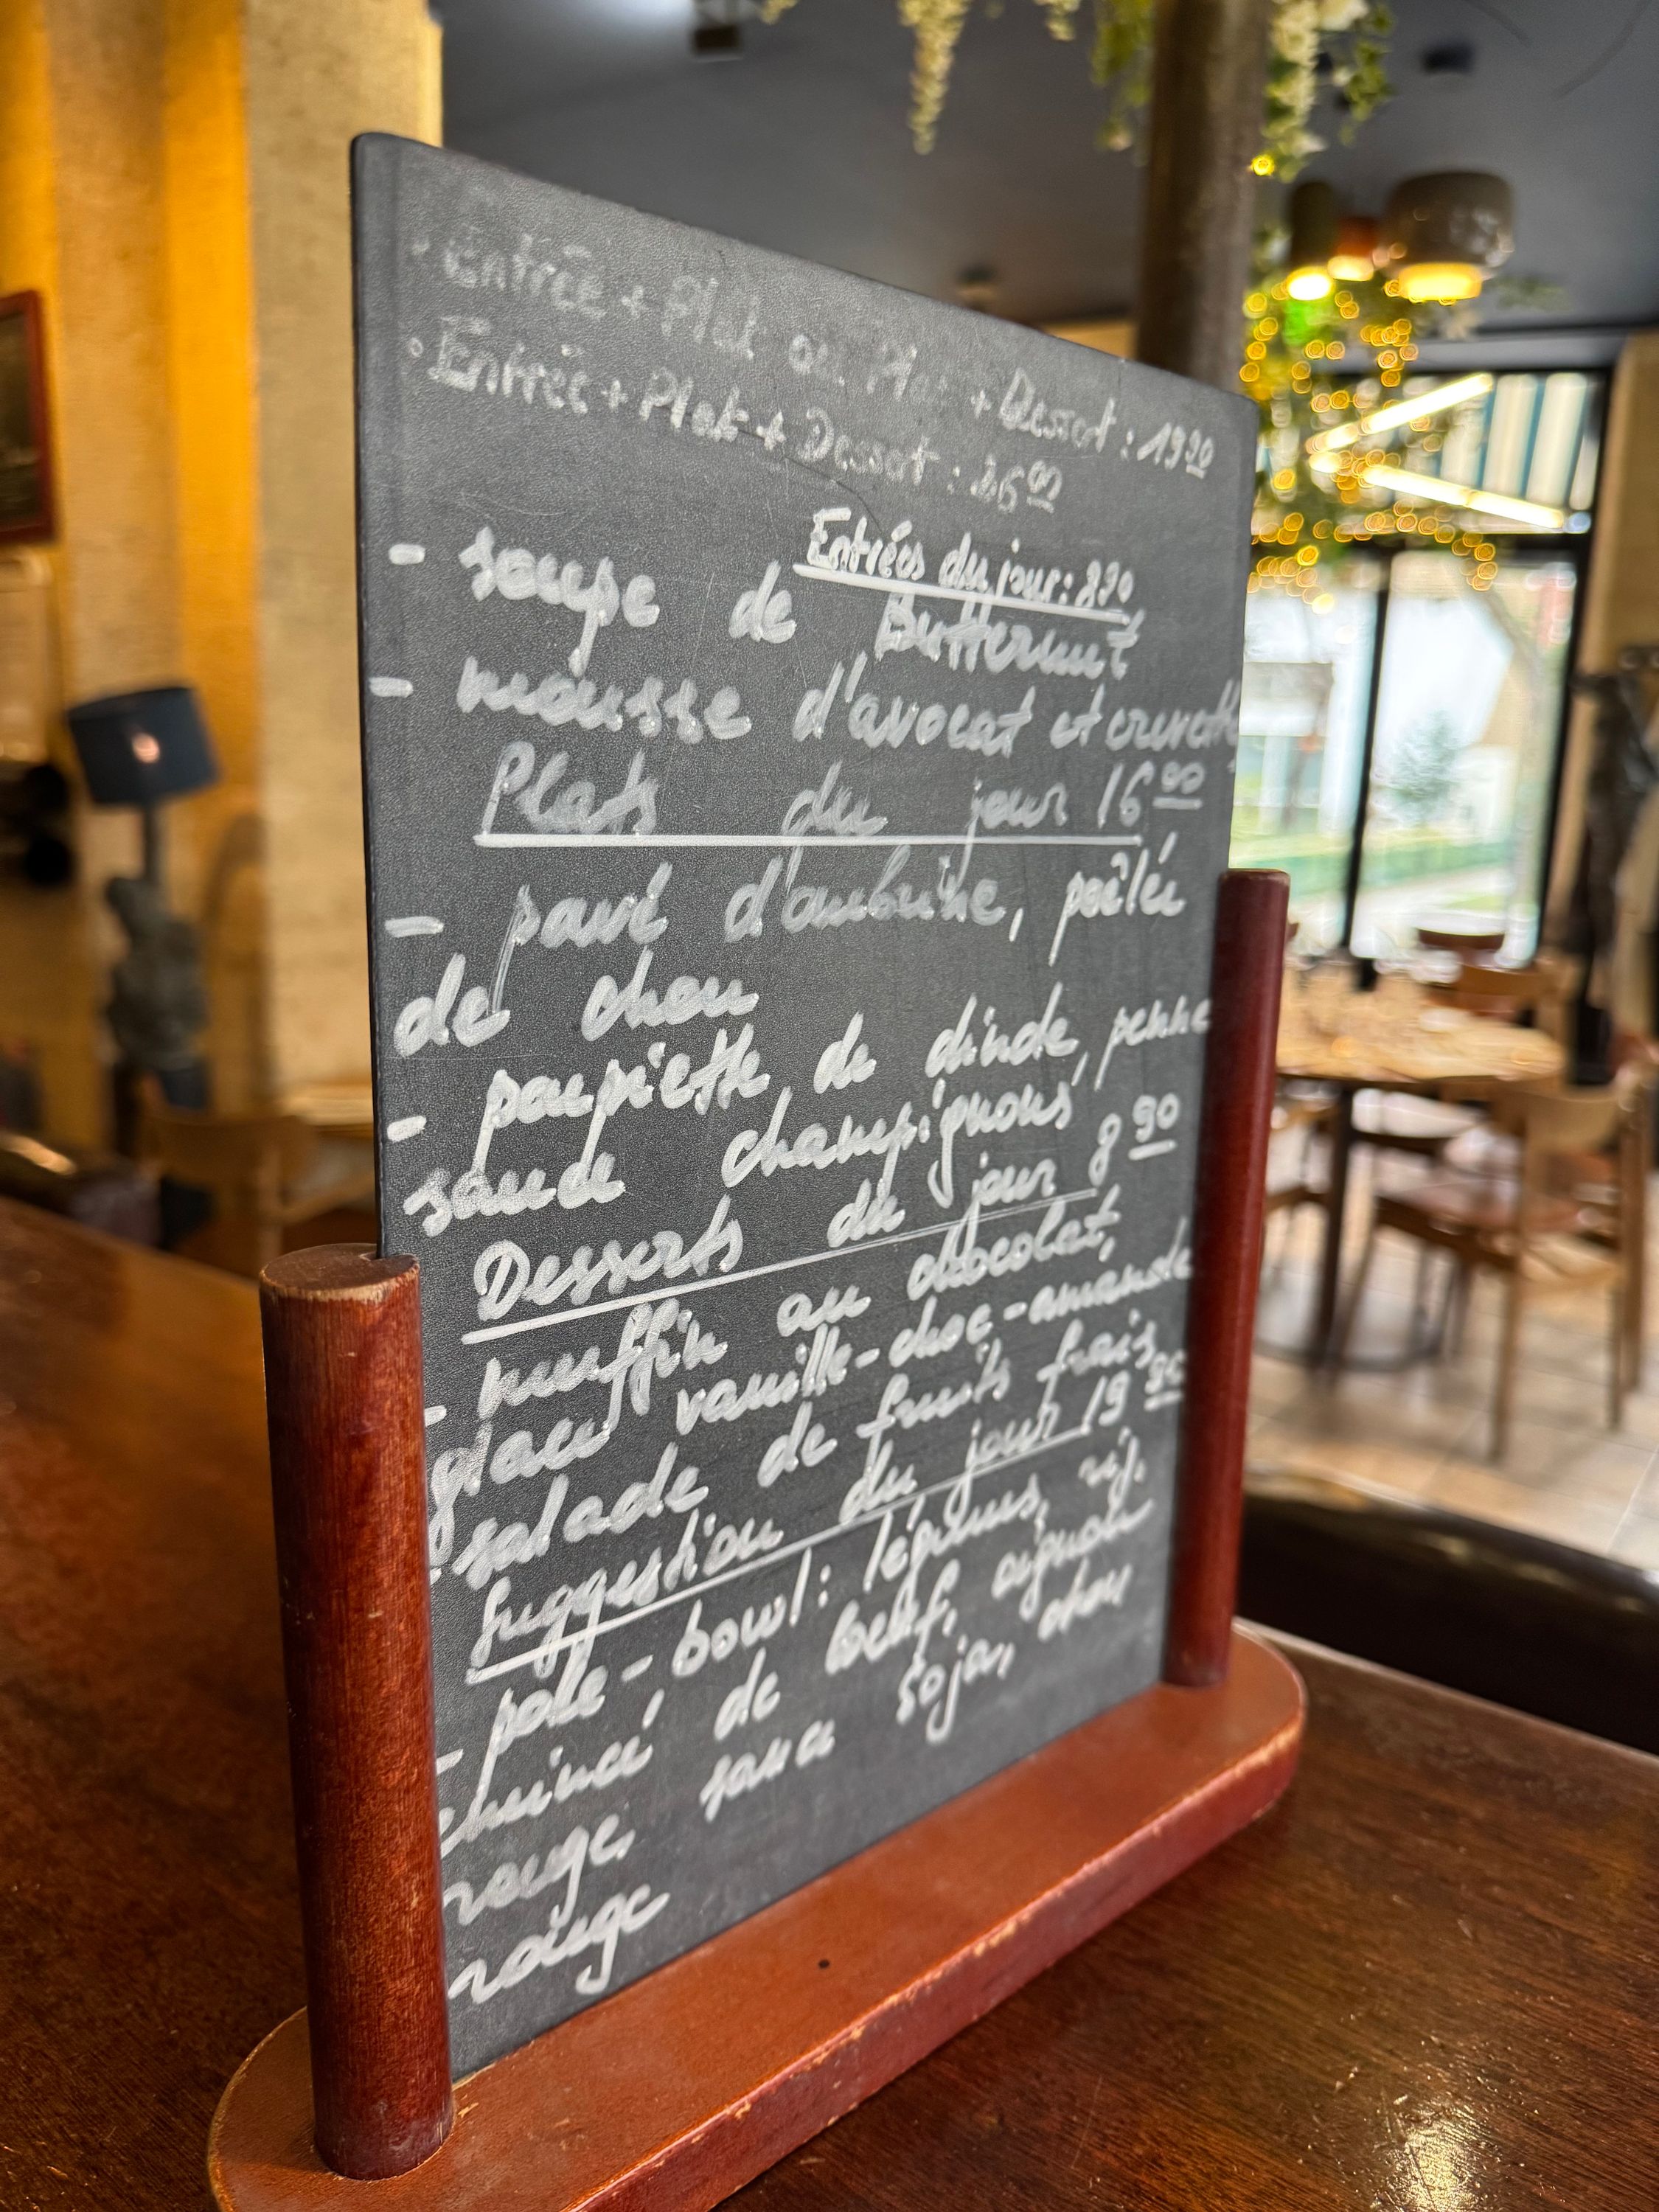 • Entrée + Plat ou Plat + Dessert : 19 90
• Entrée + Plat + Dessert : 26 90
Entrées du jour : 8 90
- soupe de Butternut
- mousse d'avocat et crevette
Plats du jour 16 90
- pavé d'aubrine, poêlée
de chou
- paupiette de dinde, penne
sauce champignons
Desserts du jour 8 90
- muffin au chocolat,
glace vanille-choc-amande
- salade de fruits frais
Suggestion du jour 19
- poke-bowl : légumes, riz,
émincé de boeuf, oignon
rouge, sauce soja, chou
rouge